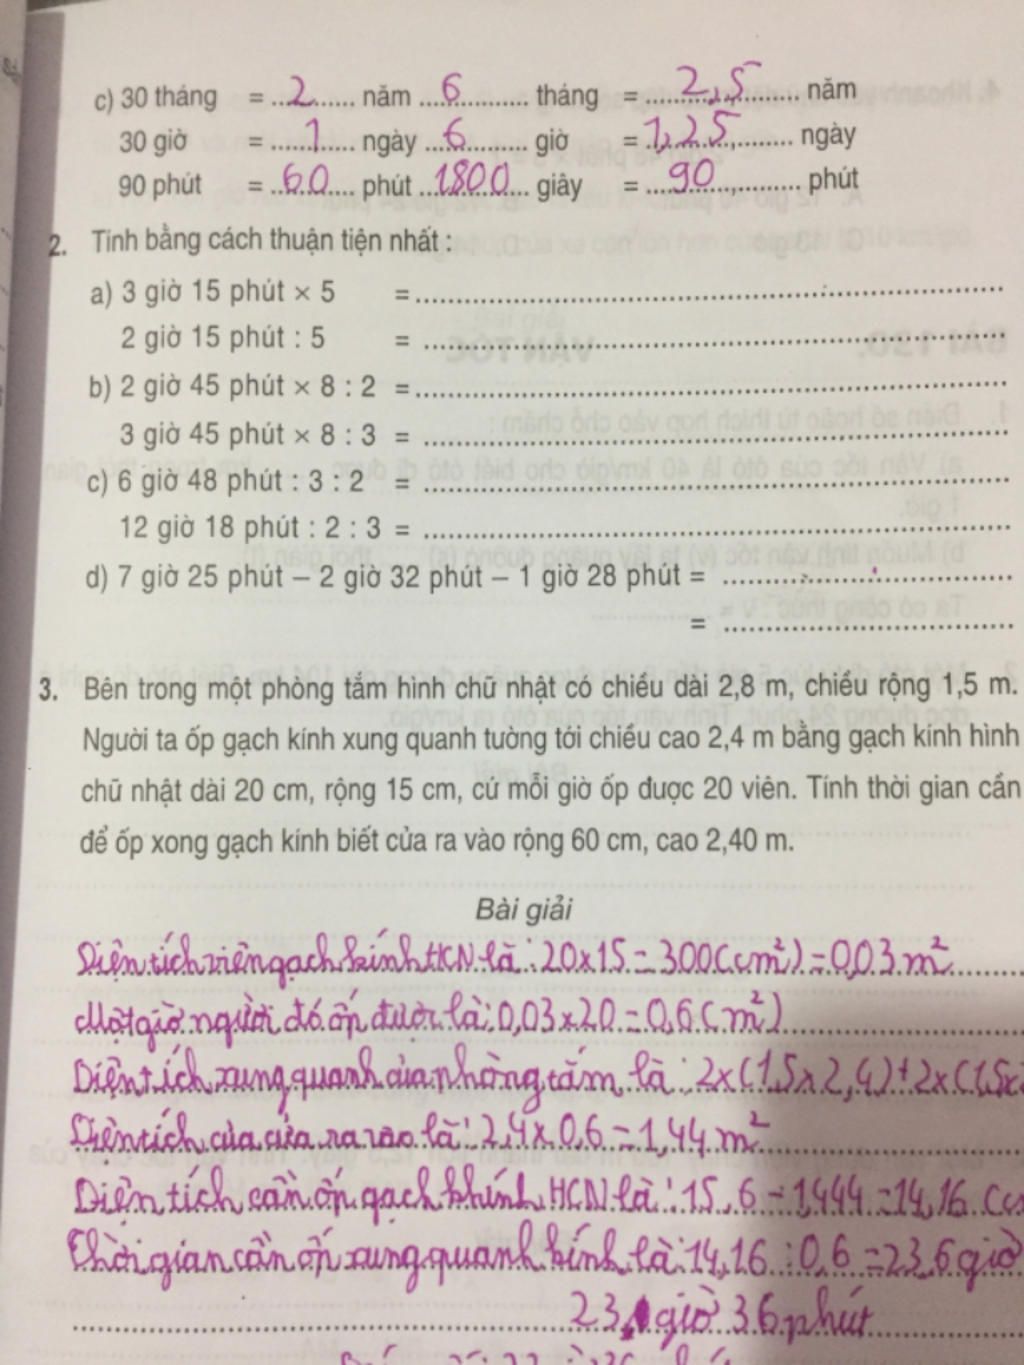 c) 30 tháng = ...2...... năm ....6......... tháng = ....2,5....... năm
30 giờ = ....1.... ngày ...6........ giờ = .1,25.,....... ngày
90 phút = ..60.... phút ..1800.. giây = ...90..,......... phút
2. Tính bằng cách thuận tiện nhất :
a) 3 giờ 15 phút × 5 = ........................................
2 giờ 15 phút : 5 = ........................................
b) 2 giờ 45 phút × 8 : 2 = ........................................
3 giờ 45 phút × 8 : 3 = ........................................
c) 6 giờ 48 phút : 3 : 2 = ........................................
12 giờ 18 phút : 2 : 3 = ........................................
d) 7 giờ 25 phút – 2 giờ 32 phút – 1 giờ 28 phút = ....................
= ....................
3. Bên trong một phòng tắm hình chữ nhật có chiều dài 2,8 m, chiều rộng 1,5 m.
Người ta ốp gạch kính xung quanh tường tới chiều cao 2,4 m bằng gạch kính hình
chữ nhật dài 20 cm, rộng 15 cm, cứ mỗi giờ ốp được 20 viên. Tính thời gian cần
để ốp xong gạch kính biết cửa ra vào rộng 60 cm, cao 2,40 m.
Bài giải
Diện tích viên gạch kính HCN là : 20x15 = 300(cm²) = 0,03 m²
Một giờ người đó ốp được là : 0,03 x 20 = 0,6 (m²)
Diện tích xung quanh của phòng tắm là : 2x(1,5x2,4)+2x(1,5x
Diện tích của cửa ra vào là : 2,4 x 0,6 = 1,44 m²
Diện tích cần ốp gạch khính HCN là : 15,6 - 1,444 = 14,16
Thời gian cần ốp xung quanh kính là : 14,16 : 0,6 = 23,6 giờ
23 giờ 36 phút